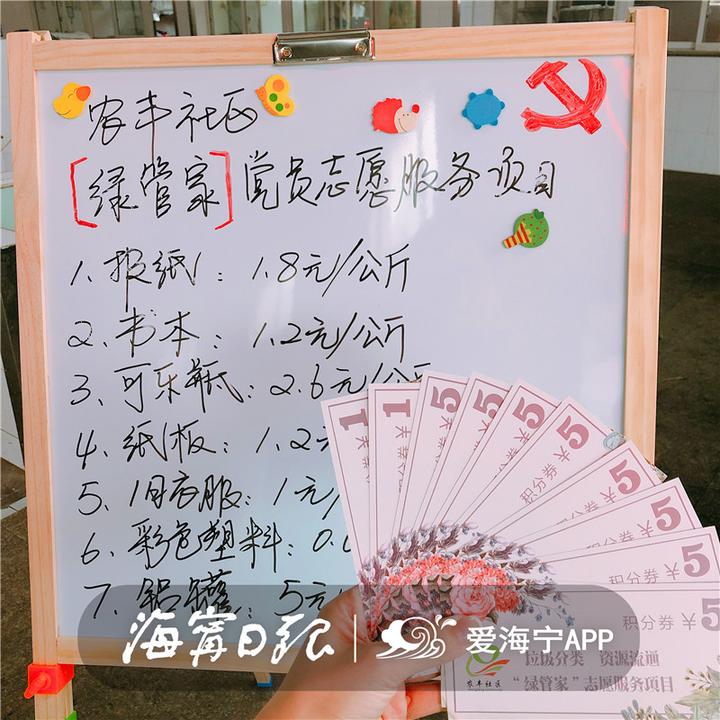 农丰社区
[绿管家]党员志愿服务项目
1. 报纸：1.8元/公斤
2. 书本：1.2元/公斤
3. 可乐瓶：2.6元/公斤
4. 纸板：1.2元
5. 旧衣服：1元/
6. 彩色塑料：0.
7. 铝罐：5元
1
1
5
5
5
积分券 ¥5
积分券 ¥5
积分券 ¥5
积分券 ¥5
积分券 ¥5
农丰社区
垃圾分类 资源流通
“绿管家”志愿服务项目
海宁日报
爱海宁APP